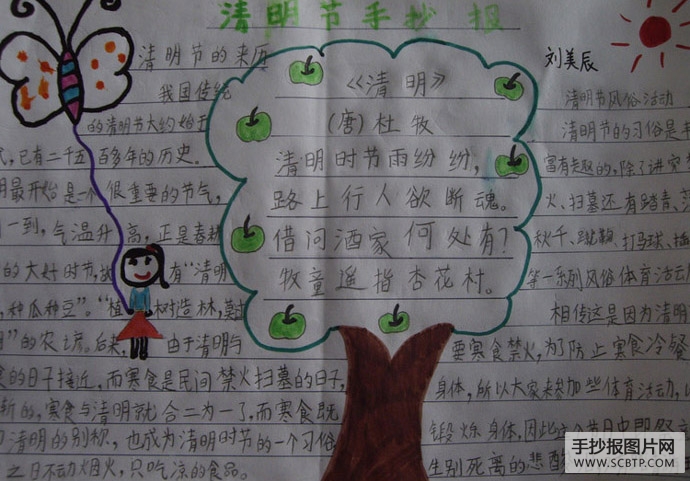 清明节手抄报
刘美辰
清明节的来历
我国传统
的清明节大约始于
已有二千五百多年的历史。
明最开始是一个很重要的节气,
一到,气温升高,正是春耕
的大好时节,故 有“清明
种瓜种豆”。“植 树造林,莫过
”的农谚。后来, 由于清明与
的日子接近,而寒食是民间禁火扫墓的日子,
渐的,寒食与清明就合二为一了,而寒食既
清明的别称,也成为清明时节的一个习俗
之日不动烟火,只吃凉的食品。
《清明》
(唐)杜牧
清明时节雨纷纷,
路上行人欲断魂。
借问酒家何处有?
牧童遥指杏花村。
清明节风俗活动
清明节的习俗是丰
富有趣的,除了讲究禁
火、扫墓还有踏青、荡
秋千、蹴鞠、打马球、插
等一系列风俗体育活动
相传这是因为清明
要寒食禁火,为了防止寒食冷餐
身体,所以大家来参加些体育活动,以
锻炼身体,因此这个节日中既有
生别死离的悲酸
手抄报图片网
WWW.SCBTP.COM